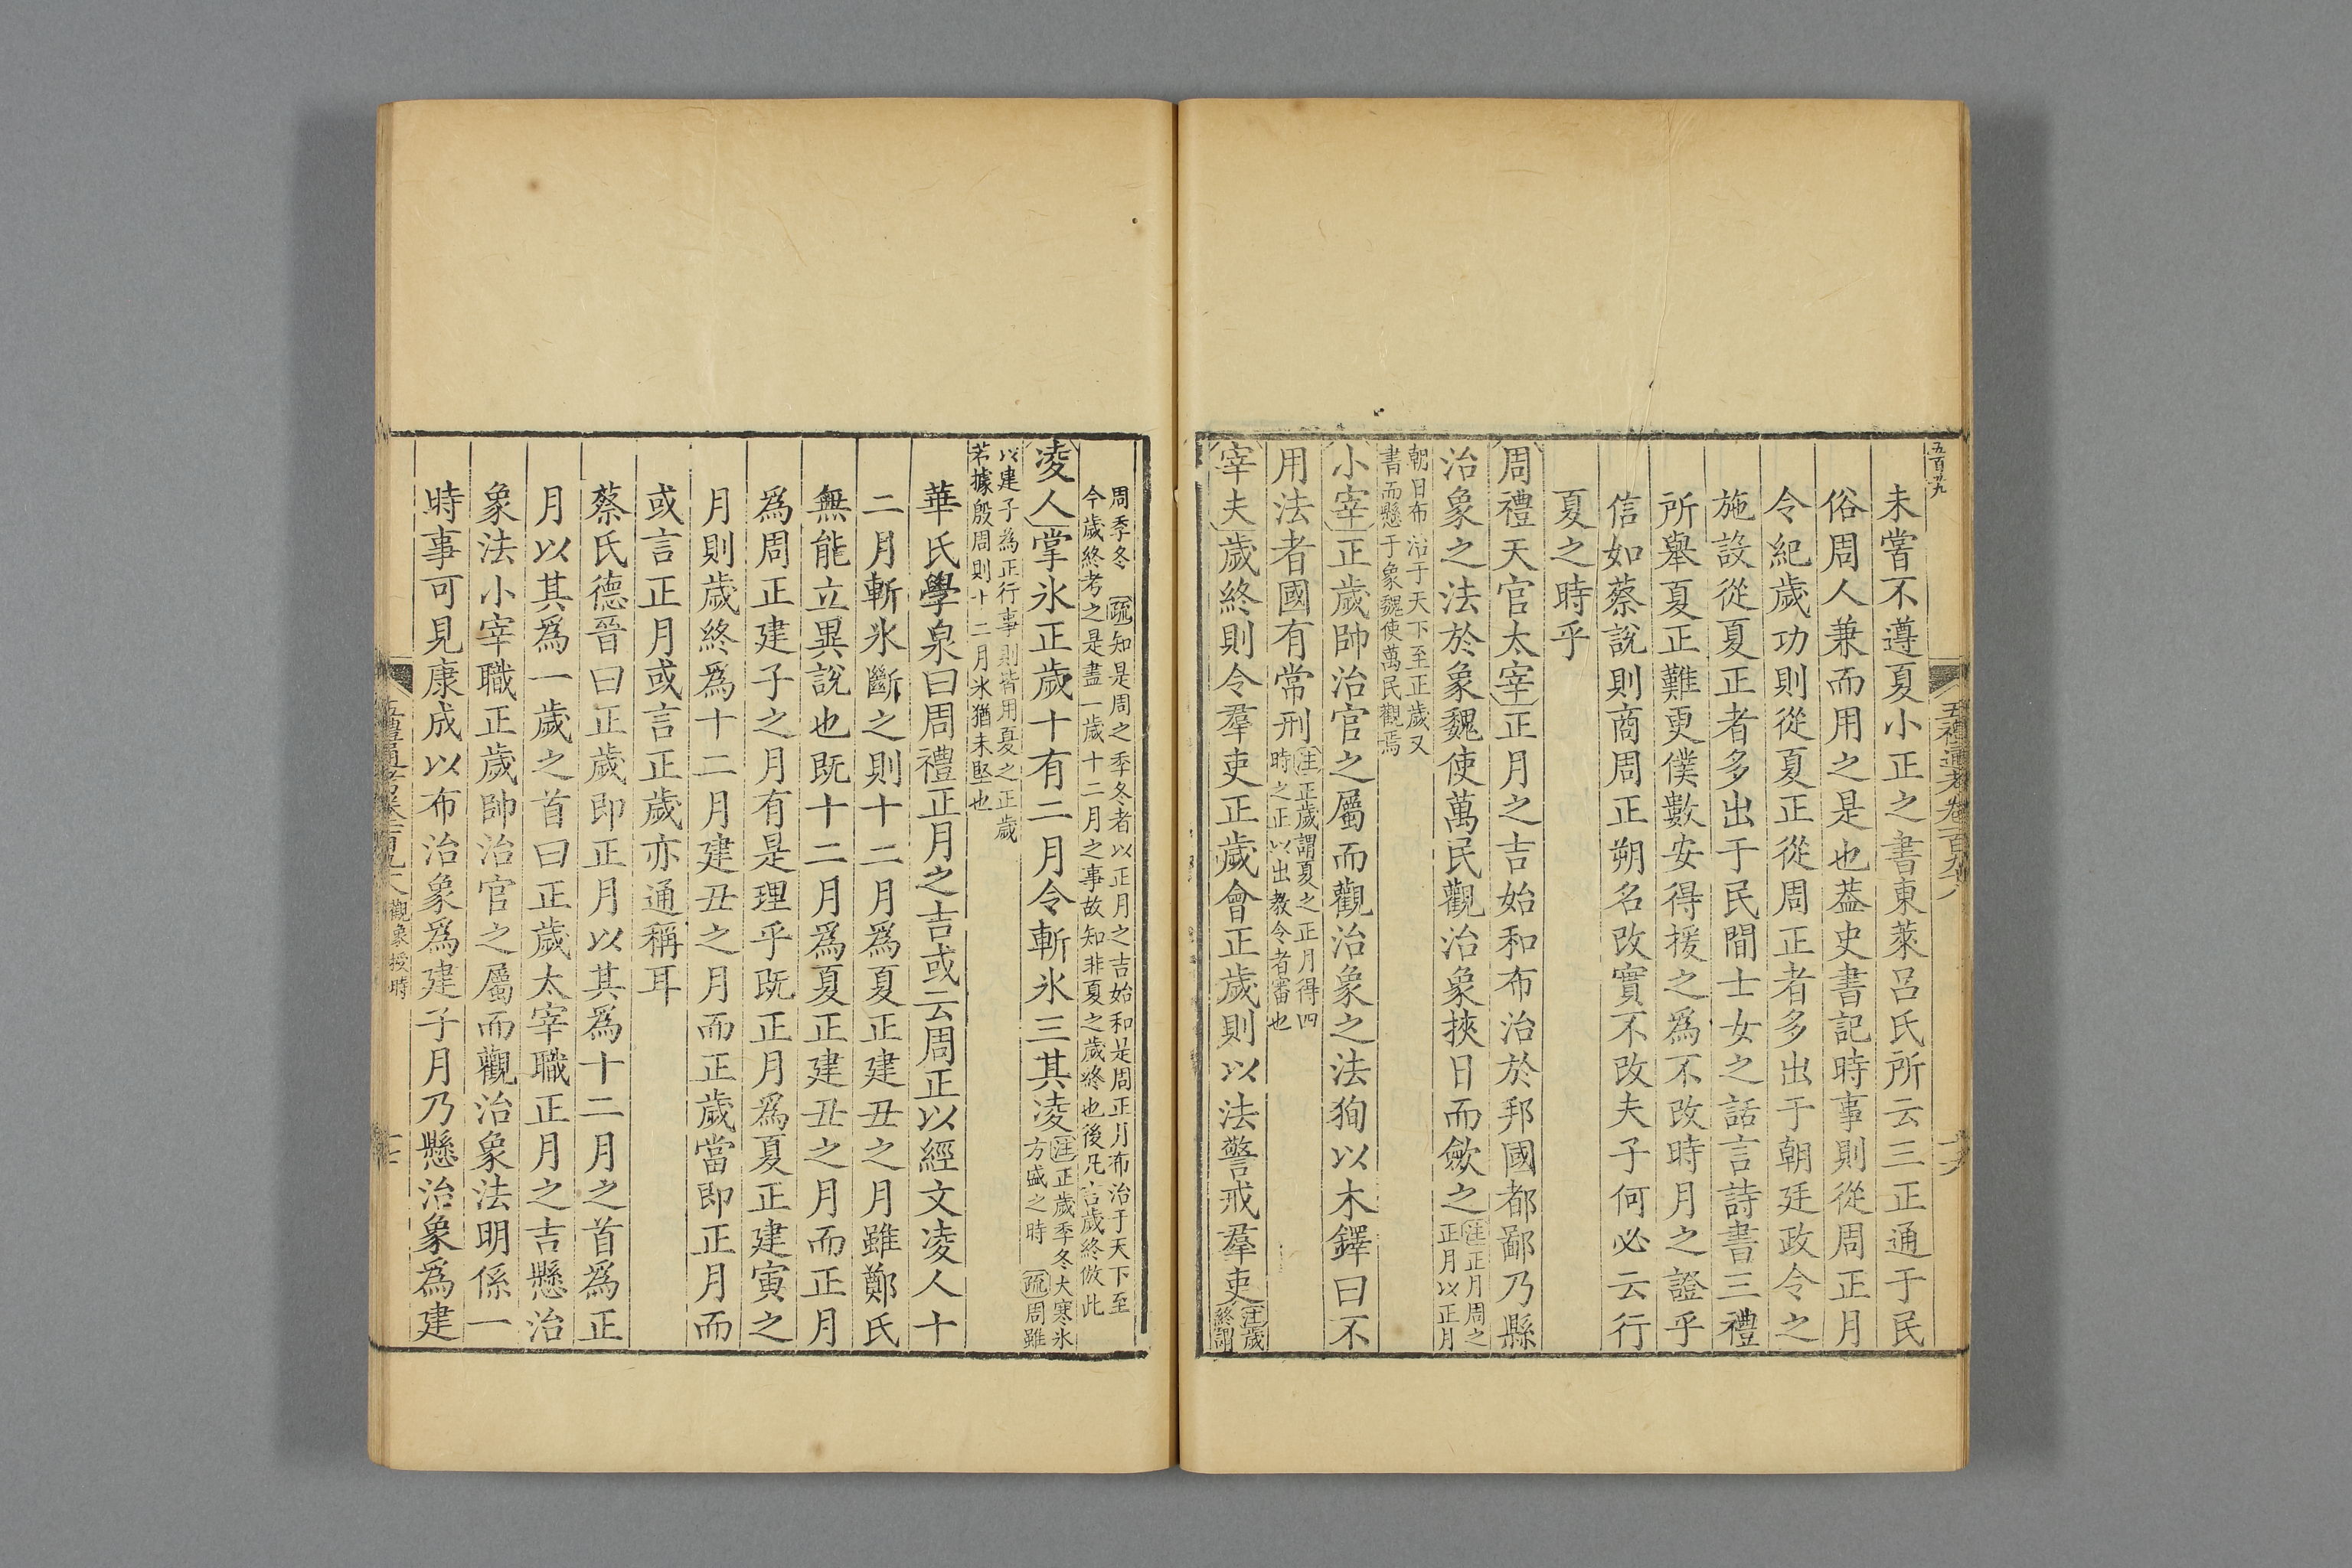 五百卅九
未嘗不遵夏小正之書東萊呂氏所云三正通于民
俗周人兼而用之是也葢史書記時事則從周正月
令紀歲功則從夏正從周正者多出于朝廷政令之
施設從夏正者多出于民間士女之話言詩書三禮
所舉夏正難更僕數安得援之爲不改時月之證乎
信如蔡說則商周正朔名改實不改夫子何必云行
夏之時乎
周禮天官太宰正月之吉始和布治於邦國都鄙乃縣
治象之法於象魏使萬民觀治象挾日而斂之注正月周之
正月以正月
朝日布治于天下至正歲又
書而懸于象魏使萬民觀焉
小宰正歲帥治官之屬而觀治象之法狥以木鐸曰不
用法者國有常刑注正歲謂夏之正月得四
時之正以出教令者審也
宰夫歲終則令羣吏正歲會正歲則以法警戒羣吏注歲
終謂
五禮通考卷一百九十八
十六
周季冬　疏知是周之季冬者以正月之吉始和是周正月布治于天下至
今歲終考之是盡一歲十二月之事故知非夏之歲終也後凡言歲終倣此
凌人掌氷正歲十有二月令斬氷三其凌注正歲季冬大寒氷
方盛之時　疏周雖
以建子為正行事則皆用夏之正歲
若據殷周則十二月氷猶未堅也
華氏學泉曰周禮正月之吉或云周正以經文凌人十
二月斬氷斷之則十二月爲夏正建丑之月雖鄭氏
無能立異說也旣十二月爲夏正建丑之月而正月
爲周正建子之月有是理乎旣正月爲夏正建寅之
月則歲終爲十二月建丑之月而正歲當即正月而
或言正月或言正歲亦通稱耳
蔡氏德晉曰正歲即正月以其爲十二月之首爲正
月以其爲一歲之首曰正歲太宰職正月之吉懸治
象法小宰職正歲帥治官之屬而觀治象法明係一
時事可見康成以布治象爲建子月乃懸治象爲建
觀象授時
十七